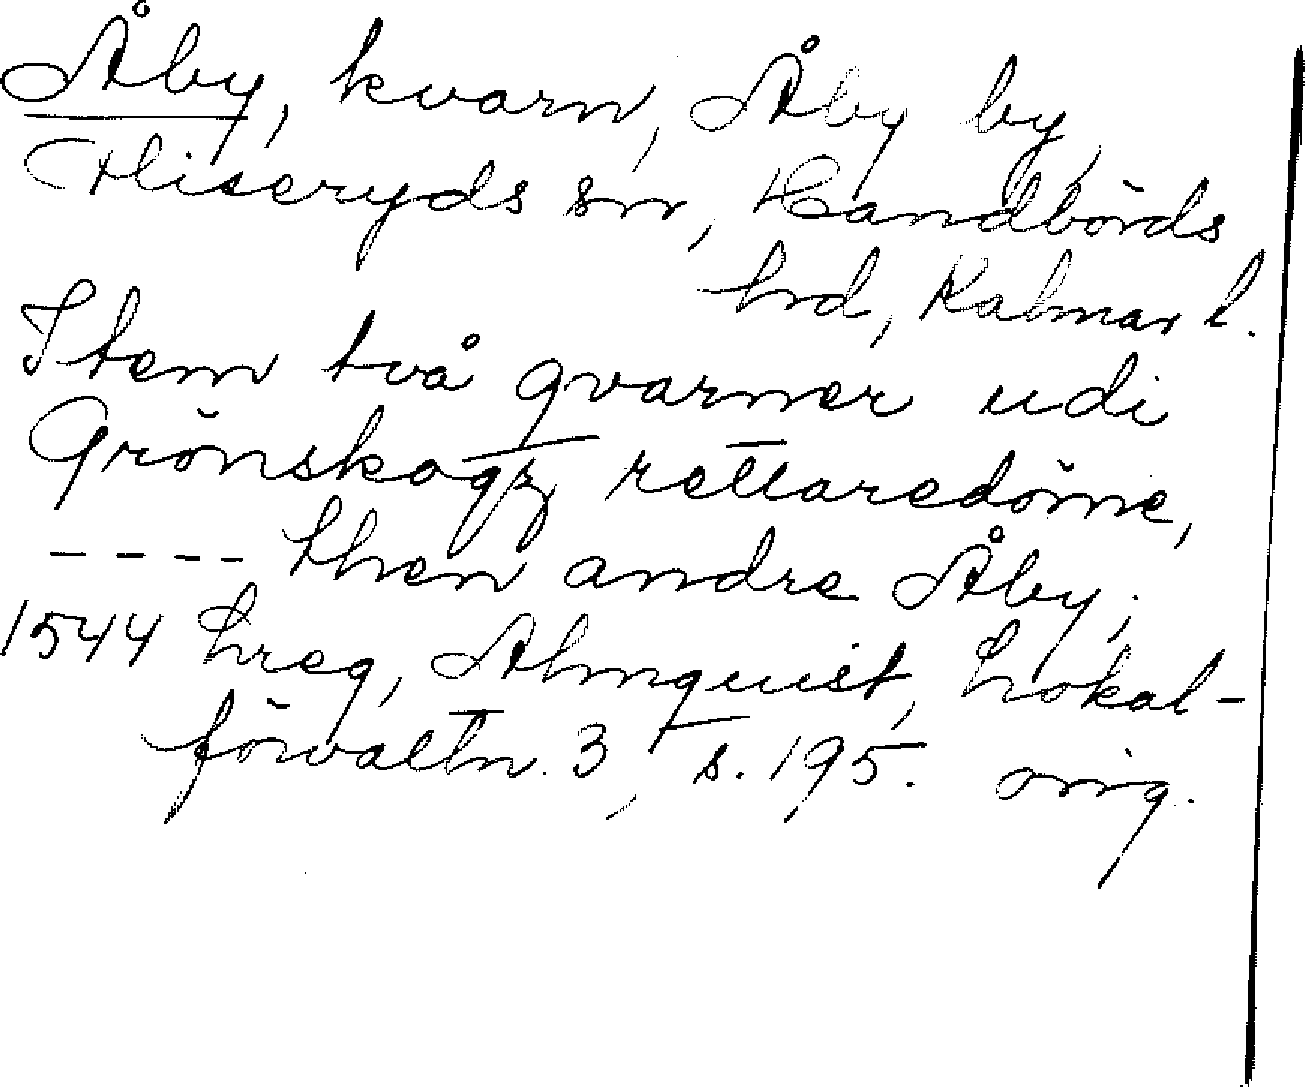 Åby, kvarn, Åby by,
Fliseryds sn, Handbörds
hd, Kalmar l.
Item två qvarner udi
Grönskogz rettaredöme,
---- then andre Åby;
1544 hreg, Almquist, Lokal-
förvaltn. 3, s. 195. orig.